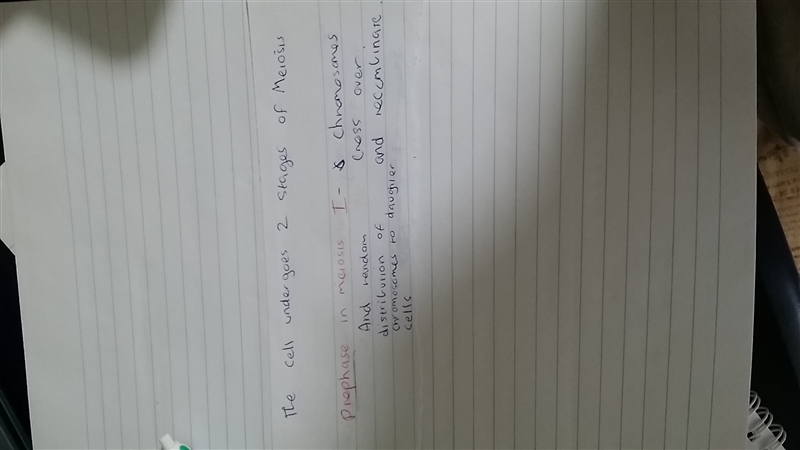 The cell undergoes 2 stages of Meiosis
Prophase in meiosis I - chromosomes
cross over
and reccombinate.
And random
distribution of
chromosomes to daughter
cells